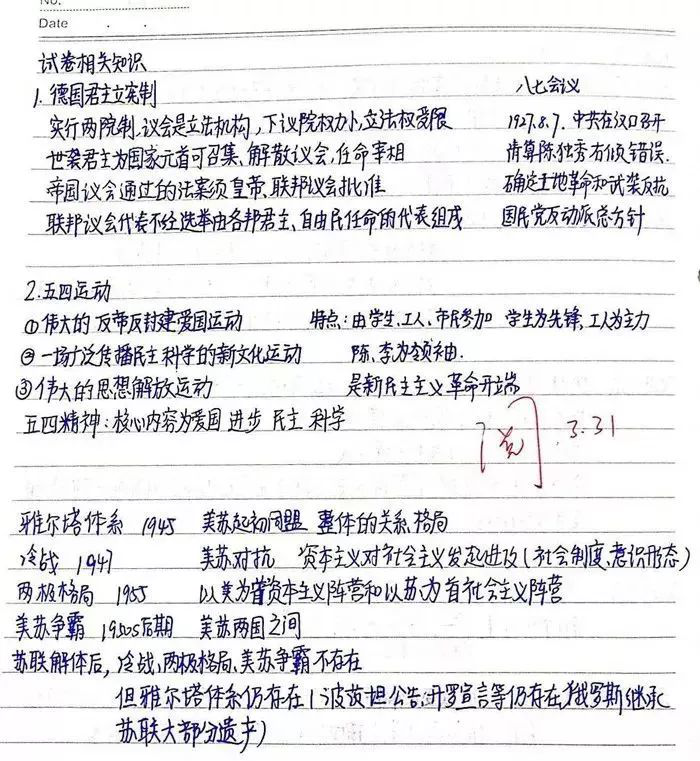 No.
Date
试卷相关知识
1. 德国君主立宪制
实行两院制、议会是立法机构，下议院权力小，立法权受限
世袭君主为国家元首可召集、解散议会，任命宰相
帝国议会通过的法案须皇帝、联邦议会批准
联邦议会代表不经选举由各邦君主、自由民任命的代表组成
八七会议
1927.8.7. 中共在汉口召开
清算陈独秀右倾错误.
确定土地革命和武装反抗
国民党反动派总方针
2. 五四运动
①伟大的反帝反封建爱国运动 特点：由学生、工人、市民参加 学生为先锋，工人为主力
②一场广泛传播民主科学的新文化运动 陈、李为领袖.
③伟大的思想解放运动 是新民主主义革命开端
五四精神：核心内容为爱国 进步 民主 科学
阅 3.31
雅尔塔体系 1945 美苏起初同盟 整体的关系、格局
冷战 1947 美苏对抗 资本主义对社会主义发起进攻（社会制度、意识形态）
两极格局 1955 以美为首资本主义阵营和以苏为首社会主义阵营
美苏争霸 1950s后期 美苏两国之间
苏联解体后，冷战、两极格局、美苏争霸不存在
但雅尔塔体系仍存在（波茨坦公告、开罗宣言等仍存在，俄罗斯继承
苏联大部分遗产）